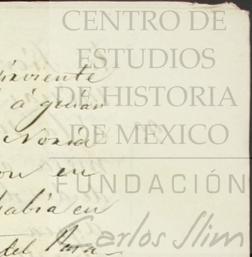 CENTRO DE
ESTUDIOS
DE HISTORIA
DE MEXICO
FUNDACIÓN
Carlos Slim
sirviente
á guiar
Noria
on en
había en
del Para-